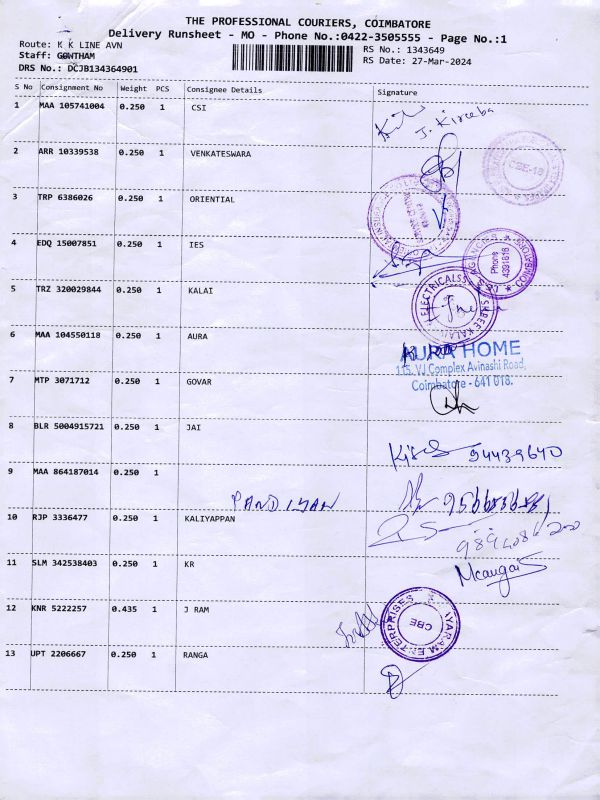 THE PROFESSIONAL COURIERS, COIMBATORE
Delivery Runsheet - MO - Phone No.:0422-3505555 - Page No.:1
Route: K K LINE AVN
RS No.: 1343649
Staff: GOWTHAM
RS Date: 27-Mar-2024
DRS No.: DCJB134364901
S No Consignment No Weight PCS Consignee Details Signature
1 MAA 105741004 0.250 1 CSI
J. Kireeba
2 ARR 10339538 0.250 1 VENKATESWARA
CBE-18
3 TRP 6386026 0.250 1 ORIENTIAL
4 EDQ 15007851 0.250 1 IES
I.E.S AGENCIES
Phone
4391818
5 TRZ 320029844 0.250 1 KALAI
ELECTRICALSS
SHREE KALAI
6 MAA 104550118 0.250 1 AURA
AURA HOME
115, VJ Complex Avinashi Road,
Coimbatore - 641 018.
7 MTP 3071712 0.250 1 GOVAR
8 BLR 5004915721 0.250 1 JAI
94439640
9 MAA 864187014 0.250 1
PANDIYAN
10 RJP 3336477 0.250 1 KALIYAPPAN
11 SLM 342538403 0.250 1 KR
12 KNR 5222257 0.435 1 J RAM
AYARAM ENTERPRISES
CBE
13 UPT 2206667 0.250 1 RANGA